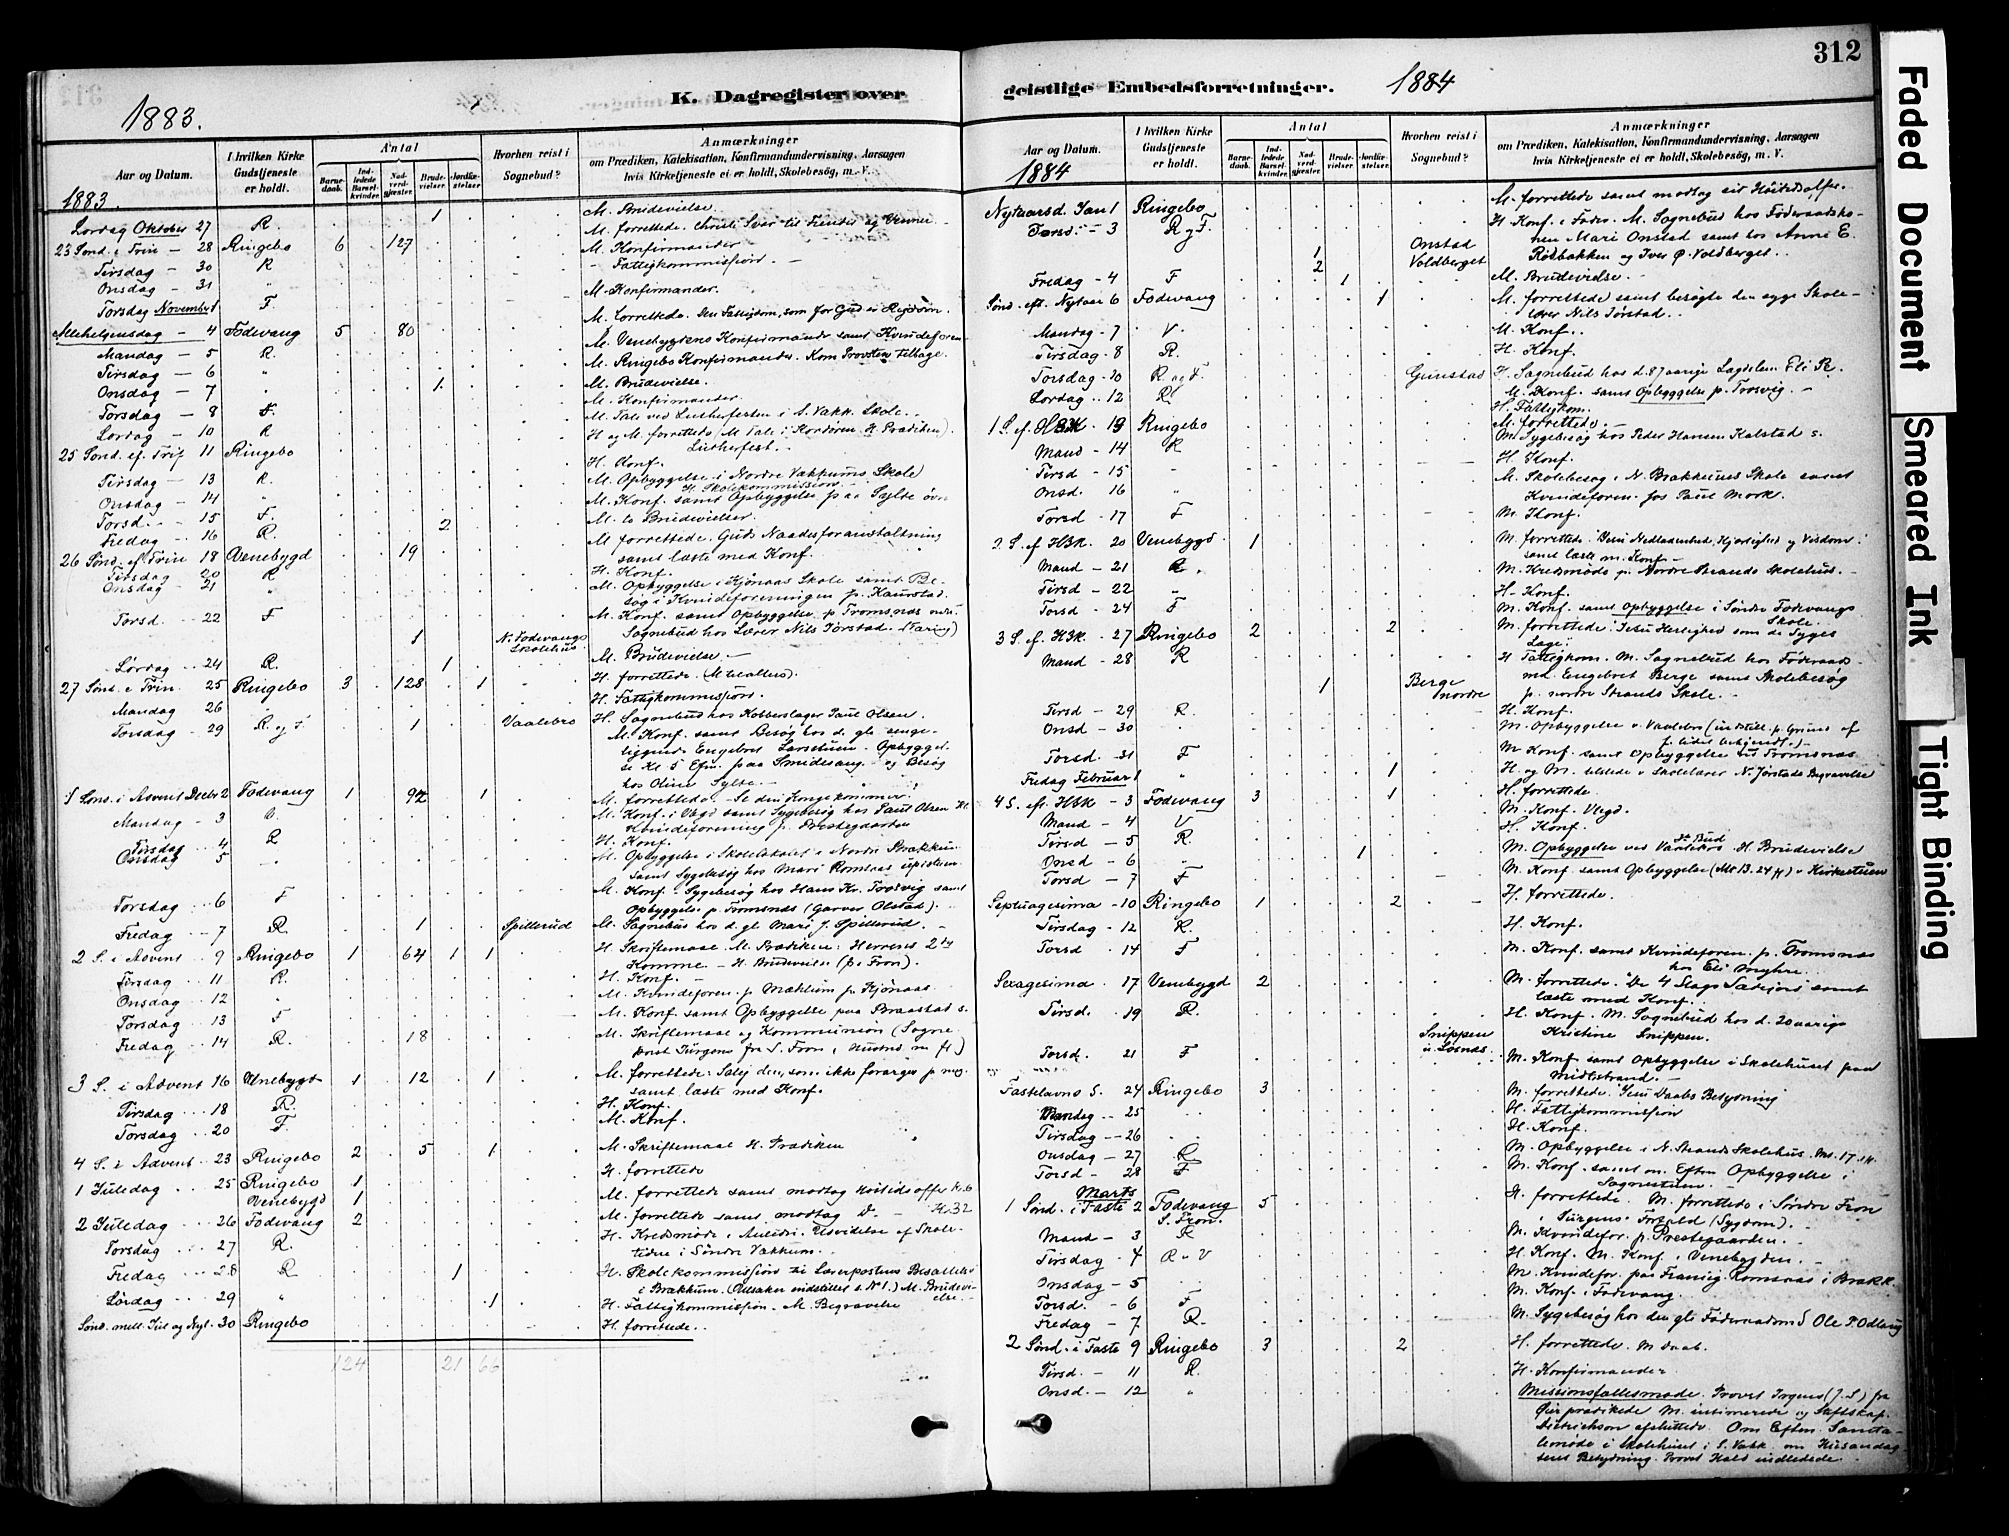 312
K. Dagregister over
geistlige Embedsforretninger.
1884
1883.
Aar og Datum.
I hvilken Kirke Gudstjeneste er holdt.
Antal
Barnedaab.
Indledede Barselkvinder.
Nadverdgjæster.
Brudevielser.
Jordfæstelser.
Hvorhen reist i Sognebud?
Anmærkninger
om Prædiken, Katekisation, Konfirmandundervisning, Aarsagen
hvis Kirketjeneste ei er holdt, Skolebesøg, m. V.
1883.
Lørdag Oktober 27 R. 1 M. Brudevielse.
23 Sønd. e Trin - 28 Ringebo 6 127 M. forrettede. Christi Svar til Fiender og Venner
Tirsdag - 30 R M. Konfirmander
Onsdag - 31 " Fattigkommission.
Torsdag November 1 F. M. Konfirmander.
Allehelgensdag - 4 Fodevang 5 80 M. forrettede. Den Fattigdom, som for Gud er Rigdom.
Mandag - 5 R. M. Venebygdens Konfirmander samt Kvindeforen.
Tirsdag - 6 " M. Ringebo Konfirmander. Kom Provsten tilbage.
Onsdag - 7 " 1 M. Brudevielse.
Torsdag - 8 F. M. Konfirmander
Lørdag - 10 R M. Tale ved Lutherfesten i S. Vækk. Skole.
25 Sønd. ef. Trif 11 Ringebo H og M. forrettede (M Tale i Kordøren. H. Prædiken).
Lutherfest.
Tirsdag - 13 R. H. Konf.
Onsdag - 14 " M. Opbyggelse i Nordre Vækkums Skole
H. Skolekommission
Torsd. - 15 F. M. Konf. samt Opbyggelse paa Sylte øvr
Fredag - 16 R. 2 M. to Brudevielser.
26 Sønd. ef Trin 18 Venebygd 19 M forrettede. Guds Naadesforanstaltning
samt læste med Konf.
Tirsdag 20 R H. Konf.
Onsdag 21 " M. Opbyggelse i Kjønaas Skole samt Be-
søg i Kvindeforeningen p. Kaurstad
Torsd. 22 F M. Konf. samt Opbyggelse p. Tromsnæs
1 N. Fodevangs Skolehus Sognebud hos Lærer Nils Jørstad.
Lørdag 24 R. 1 M. Brudevielse.
27 Sønd. e Trin. 25 Ringebo 3 128 1 H. forrettede.
Mandag 26 " H. Fattigkommission.
Torsdag 29 R og F 1 Vaalebro H. Sognebud hos Kobberslager Paul Olsen.
M. Konf. samt Besøg hos d. gle senge-
liggende Engebret Larsstuen - Opbyggel-
se Kl 5 Efm. paa Smidesang og Besøg
hos Oline Sylte.
1 Sønd. i Advent Decbr 2 Fodevang 1 92 1 M. forrettede. Se din Konge kommer!
Mandag - 3 V. M. Konf. i V.bygd samt Sygebesøg hos Paul Olsen Kl
Kvindeforening p. Prestegaarden
Tirsdag 4 R H. Konf.
Onsdag 5 " M. Opbyggelse i Skolelokalet i Nordre Brækkum
samt Sygebesøg hos Mari Romsaas
Torsdag 6 F M. Konf. - Sygebesøg hos Hans Kr. Trosvig samt
Opbyggelse p. Tromsnæs (Garver Olstad)
Fredag - 7 R. 1 Spillerud M. Sognebud hos d. gl Mari J. Spillerud.
2 S. i Advent 9 Ringebo 1 64 1 1 H. Skriftemaal. M. Prædiken: Herrens 2de
Komme. - H. Brudevielse (p. Fron).
Tirsdag 11 R. H. Konf.
Onsdag 12 " M. Kvindeforen. p. Mæhlum p. Kjønaas
Torsdag 13 F M. Konf. samt Opbyggelse paa Braastad s.
Fredag 14 R. 18 M. Skriftemaal og Kommunion (Sogne-
prest Jürgens fra S. Fron, Hustru m fl.)
3 S. i Advent 16 Venebygd 1 12 1 M. forrettede: Salig den, som ikke forarges p. mig.
samt læste med Konf.
Tirsdag 18 R. H. Konf.
Torsdag 20 F. M. Konf.
4 S. i Advent 23 Ringebo 2 5 1 M. Skriftemaal H. Prædiken
1 Juledag 25 Ringebo 1 H. forrettede
Venebygd 1 M. forrettede samt modtog Høitidsoffer Kr. 6
2 Juledag 26 Fodevang 2 M. forrettede samt modtog D. - Kr 32
Torsdag 27 R. H. Kredsmøde, Udvidelse af Skole-
tiden i Søndre Vækkum.
Fredag 28 R 1 H. Skolekommission Lærerpostens Besættelse
i Brækkum. M. Brudevi-
else.
Lørdag 29 " 1 H. Fattigkommission. M. Begravelse
Sønd. mell. Jul og Nyt. 30 Ringebo H. forrettede.
124 21 66
Aar og Datum.
I hvilken Kirke Gudstjeneste er holdt.
Antal
Barnedaab.
Indledede Barselkvinder.
Nadverdgjæster.
Brudevielser.
Jordfæstelser.
Hvorhen reist i Sognebud?
Anmærkninger
om Prædiken, Katekisation, Konfirmandundervisning, Aarsagen
hvis Kirketjeneste ei er holdt, Skolebesøg, m. V.
1884
Nytaarsd. Jan 1 Ringebo M. forrettede samt modtog sit Høitidsoffer.
Torsd. - 3 R og F. 1 Onstad H. Konf. i Fodev. M. Sognebud hos Føderaadsko-
nen Mari Onstad samt hos Anne E.
2 Voldberget Rødbakken og Iver Ø. Voldberget.
Fredag - 4 F 1 M. Brudevielse.
Sønd. eft. Nytaar 6 Fodevang 1 M. forrettede samt besøgte den syge Skole-
lærer Nils Jørstad.
Mandag - 7 V. M. Konf.
Tirsdag - 8 R. H. Konf.
Torsdag - 10 R og F. Gunstad H. Sognebud hos d. 87 aarige Lægdslem Eli R.
M. Konf. samt Opbyggelse p. Trosvig.
Lørdag 12 R H. Fattigkom.
1 S. ef. H3K 13 Ringebo M. forrettede.
Mand - 14 R M. Sygebesøg hos Peder Hansen Kalstad s.
Tirsd - 15 H. Konf.
Onsd. 16 " M. Skolebesøg i N. Brækkums Skole samt
Kvindeforen. hos Paul Mork.
Torsd - 17 F M. Konf.
2 S. ef H3K. 20 Venebygd 1 M. forrettede. Jesu Nedladenhed, Kjærlighed og Visdom.
samt læste m. Konf.
Mand - 21 R. M. Kredsmøde p. Nordre Strands Skolehus.
Tirsd - 22 " H. Konf.
Torsd - 24 F M. Konf. samt Opbyggelse i Søndre Fodevangs
Skole.
3 S. ef. H3K. - 27 Ringebo 2 2 M. forrettede. Jesu Herlighed som de Syges
Læge.
Mand - 28 R 1 Berge nordre H Fattigkom. M. Sognebud hos Føderaads-
md. Engebret Berge samt Skolebesøg
p. nordre Strands Skole.
Tirsd - 29 R. H. Konf.
Onsd - 30 M. Opbyggelse v. Vaalebro (indstill. p. Grund af
f. lidet bekjendt)
Torsd. - 31 F M Konf. samt Opbyggelse Tromsnæs
Fredag Februar 1 " 1 H. og M. tilstede v Skolelærer N. Jørstads Begravelse
4 S. eft. H3K - 3 Fodevang 3 1 H. forrettede.
Mand - 4 V M. Konf. Vbgd.
Tirsd - 5 R. H. Konf.
Onsd - 6 " 1 M. Opbyggelse ved Vaalebro. H Brudevielse
Torsd - 7 F M. Konf. samt Opbyggelse (Mt 13. 24 ff) v Kirkestuen
Septuagesima - 10 Ringebo 1 2 H. forrettede.
Tirsdag - 12 R. H. Konf.
Torsd - 14 F M. Konf. samt Kvindeforen. p. Tromsnæs
hos Eli Myhre.
Sexagesima - 17 Venebygd 2 M. forrettede. De 4 Slags Sædejord samt
læste med Konf.
Tirsd. 19 R. Snippen H. Konf. M. Sognebud hos d. 20 aarige
Kristine Snippen.
Torsd. 21 F M. Konf samt Opbyggelse i Skolehuset paa
Midtstrand.
Fastelavns S. 24 Ringebo 3 M. forrettede. Jesu Daabs Betydning
Mandag - 25 H. Fattigkommission
Tirsdag - 26 H. Konf.
Onsdag - 27 R M. Opbyggelse i N. Strands Skolehus.
Torsd - 28 F M. Konf. samt Opbyggelse i
Sognestuen.
Marts
1 Sønd. i Faste 2 Fodevang S. Fron. 5 H. forrettede. M. forrettede i Søndre Fron
i Jürgens Forfald (Sygdom).
Mand - 3 R M. Kvindefor. p. Prestegaarden.
Tirsdag - 4 R og V H. Konf. M. Konf. i Venebygden.
Onsdag - 5 M. Kvindefor. paa Romsaas i Brækk.
Torsd. - 6 F M. Konf. i Fodevang.
Fredag - 7 R. M. Sygebesøg hos den gle Føderaadsmd Ole P. Odlaug
2 Sønd. i Faste 9 Ringebo 3 2 H. forrettede. M Daab.
Tirsd. - 11 R. H. Konfirmander
Onsd. - 12 " Missionsfællesmøde. Provst Irgens (J. S.) fra
Øier prædikede M. intimerede og Stiftskap.
Dietrichson afsluttede. Om Efterm. Samta-
lemøde i Skolehuset i S. Vækk. om Husandag-
tens Betydning. Provst Hald indledede.
Faded Document
Smeared Ink
Tight Binding